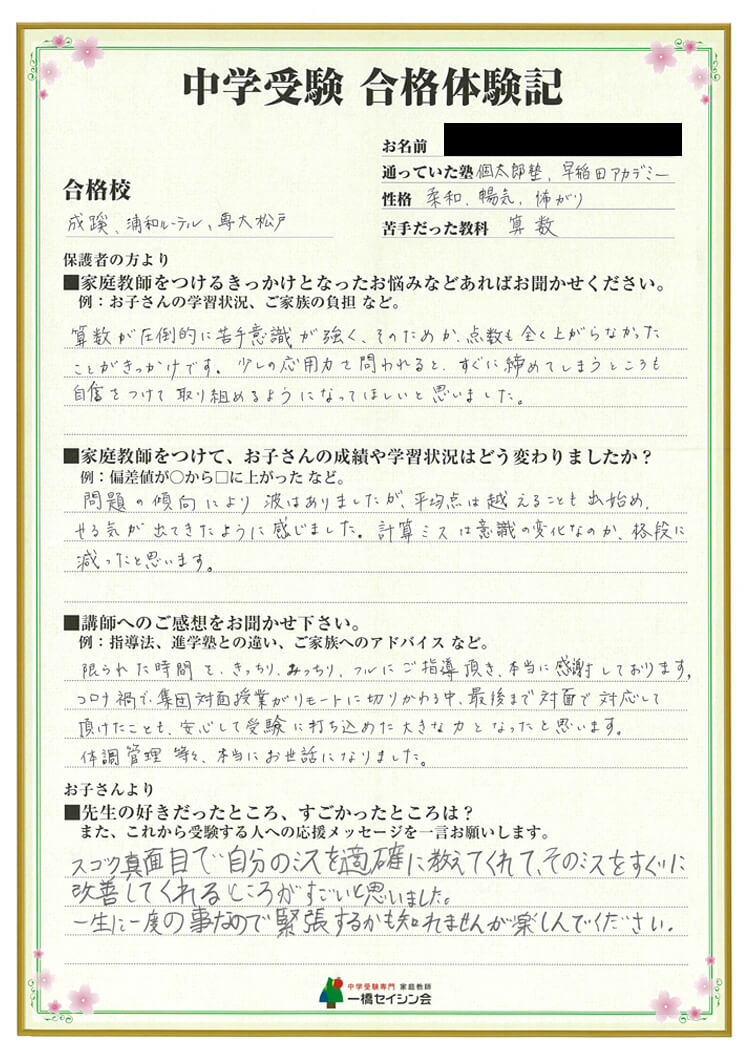 中学受験 合格体験記
お名前
通っていた塾 個太郎塾、早稲田アカデミー
合格校
性格 柔和、暢気、怖がり
成蹊、浦和ルーテル、専大松戸
苦手だった教科 算数
保護者の方より
■家庭教師をつけるきっかけとなったお悩みなどあればお聞かせください。
例：お子さんの学習状況、ご家族の負担 など。
算数が圧倒的に苦手意識が強く、そのためか、点数も全く上がらなかった
ことがきっかけです。少しの応用力を問われると、すぐに締めてしまうところも
自信をつけて取り組めるようになってほしいと思いました。
■家庭教師をつけて、お子さんの成績や学習状況はどう変わりましたか？
例：偏差値が○から□に上がった など。
問題の傾向により波はありましたが、平均点は越えることも出始め、
やる気が出てきたように感じました。計算ミスは意識の変化なのか、格段に
減ったと思います。
■講師へのご感想をお聞かせ下さい。
例：指導法、進学塾との違い、ご家族へのアドバイス など。
限られた時間を、きっちり、みっちり、フルにご指導頂き、本当に感謝しております。
コロナ禍で、集団対面授業がリモートに切りかわる中、最後まで対面で対応して
頂けたことも、安心して受験に打ち込めた大きな力となったと思います。
体調管理等々、本当にお世話になりました。
お子さんより
■先生の好きだったところ、すごかったところは？
また、これから受験する人への応援メッセージを一言お願いします。
スゴク真面目で自分のミスを適確に教えてくれて、そのミスをすぐに
改善してくれるところがすごいと思いました。
一生に一度の事なので緊張するかも知れませんが楽しんでください。
中学受験専門 家庭教師
一橋セイシン会